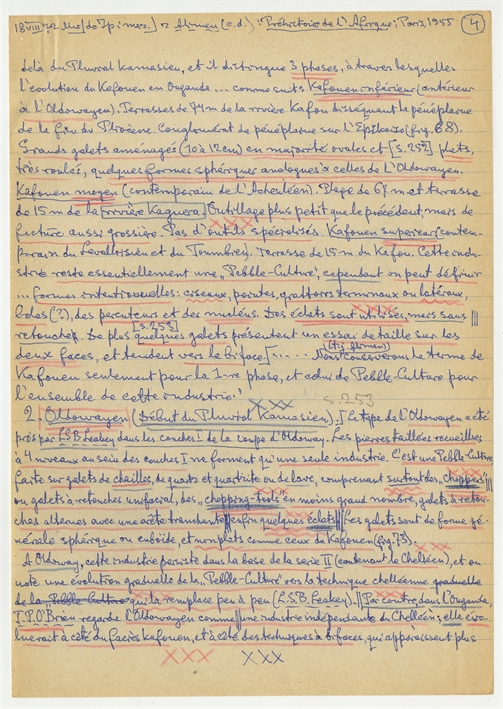 18 VIII 72 Mio (do 7p. i mez.) 2 Alimen (c.d.): "Préhistoire de l'Afrique", Paris, 1955 4
delà du Pluvial Kamasien, et il distingue 3 phases, à travers lesquelles
l'évolution du Kafouen en Ouganda ... comme suit: Kafouen inférieur (antérieur
à l'Oldowayen). Terrasses de 74 m de la rivière Kafou disséquant la pénéplaine
de la fin du Pliocène. Conglomérat de pénéplaine sur l'Epikazo (fig. 68).
Grands galets aménagés (10 à 12 cm) en majorité ovales et [s. 252] plats,
très roulés, quelques formes sphériques analogues à celles de l'Oldowayen.
Kafouen moyen (contemporain de l'Acheuléen). Plage de 67 m et terrasse
de 15 m de la rivière Kaguera. Outillage plus petit que le précédent, mais de
facture aussi grossière. Pas d'outils spécialisés. Kafouen supérieur (contem-
porain du Levalloisien et du Toumbien). Terrasse de 15 m du Kafou. Cette indu-
strie reste essentiellement une "Pebble-Culture", cependant on peut définir
... formes intentionnelles: ciseaux, pointes, grattoirs terminaux ou latéraux,
bolas (?), des percuteurs et des nucléus. Des éclats sont utilisés, mais sans
retouches. De plus [s. 253] quelques galets présentent un essai de taille sur les
deux faces, et tendent vers le biface. [.... (tzj. Alimen) Nous conserverons le terme de
Kafouen seulement pour la 1-re phase, et celui de Pebble-Culture pour
l'ensemble de cette industrie."
s. 253
2. Oldowayen (Début du Pluvial Kamasien). I Le type de l'Oldowayen a été
pris par L.S.B. Leakey dans les couches I de la coupe d'Oldoway. Les pierres taillées recueillies
à 4 niveaux au sein des couches I ne forment qu'une seule industrie. C'est une Pebble-Culture
faite sur galets de chailles, de quartz et quartzite ou de lave, comprenant surtout des "choppers"
ou galets à retouches unifacial, des "chopping-tools" en moins grand nombre, galets à retou-
ches alternes avec une arête tranchante, enfin quelques éclats. Ces galets sont de forme gé-
nérale sphérique ou cuboïde, et non plats comme ceux du Kafouen (fig. 73).
A Oldoway, cette industrie persiste dans la base de la serie II (contenant le Chelléen), et on
note une évolution graduelle de la "Pebble-Culture" vers la technique chelléenne graduelle
de la Pebble-Culture qui la remplace peu à peu (L.S.B. Leakey). Par contre, dans l'Ouganda
T.P. O'Brien regarde l'Oldowayen comme une industrie indépendante du Chelléen; elle évo-
luerait à côté du faciès kafouen, et à côté des techniques à bifaces, qui apparaissent plus